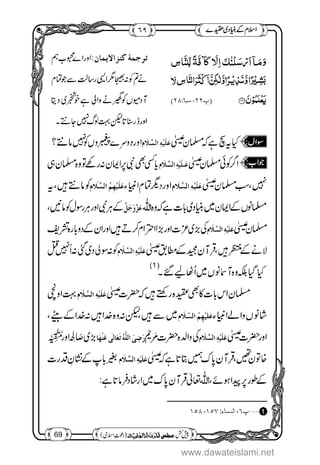 اسلام کے بنیادی عقیدے
٦٩
وَمَاۤ اَرْسَلْنٰكَ اِلَّا كَآفَّةً لِّلنَّاسِ
بَشِیْرًا وَّ نَذِیْرًا وَّ لٰكِنَّ اَكْثَرَ النَّاسِ لَا
یَعْلَمُوْنَ
(پ٢٢، سبا:٢٨)
ترجمۂ کنز الایمان: اور اے محبوب ہم
نے تم کو نہ بھیجا مگر ایسی رسالت سے جو تمام
آدمیوں کو گھیرنے والی ہے خوشخبری دیتا
اور ڈر سناتا لیکن بہت لوگ نہیں جانتے۔
سوال کیا یہ سچ ہے کہ مسلمان عیسیٰ عَلَیْہِ السَّلَام اور دوسرے پیغمبروں کو نہیں مانتے؟
جواب
اگر کوئی مسلمان عیسیٰ عَلَیْہِ السَّلَام یا کسی بھی نبی پر ایمان نہ رکھے تو وہ مسلمان ہی
نہیں، بس مسلمان عیسیٰ عَلَیْہِ السَّلَام اور دیگر تمام انبیا عَلَیْہِمُ السَّلَام کو مانتے ہیں، یہ
مسلمانوں کے ایمان میں بنیادی بات ہے کہ وہ اللہ عَزَّوَجَلَّ کے ہر نبی اور ہر رسول کو مانیں،
مسلمان عیسیٰ عَلَیْہِ السَّلَام کی بڑی عزت اور بڑا احترام کرتے ہیں اور ان کے دوبارہ تشریف
لانے کے منتظر ہیں، قرآنِ مجید کے مطابق عیسیٰ عَلَیْہِ السَّلَام کو نہ سولی دی گئی نہ انہیں قتل
کیا گیا بلکہ وہ آسمانوں میں اُٹھا لیے گئے۔(١)
مسلمان اس بات کا بھی عقیدہ رکھتے ہیں کہ حضرت عیسیٰ عَلَیْہِ السَّلَام بہت اونچی
شانوں والے انبیا عَلَیْہِمُ السَّلَام میں سے ہیں، لیکن نہ وہ خدا ہیں نہ وہ خدا کے بیٹے،
اور حضرت عیسیٰ عَلَیْہِ السَّلَام کی والدہ حضرت مریم رَضِیَ اللہُ تَعَالٰی عَنْہَا بڑی صالحہ اور مُتَّقِیَہ
خاتون تھیں، قرآنِ پاک ہمیں بتاتا ہے کہ عیسیٰ عَلَیْہِ السَّلَام بغیر باپ کے نشانِ قدرت
کے طور پر پیدا ہوئے، اللہ تعالیٰ قرآنِ پاک میں ارشاد فرماتا ہے:
1 ...... پ٦، النساء: ١٥٧، ١٥٨
69
(دعوتِ اسلامی)
پیش کش:
www.dawateislami.net